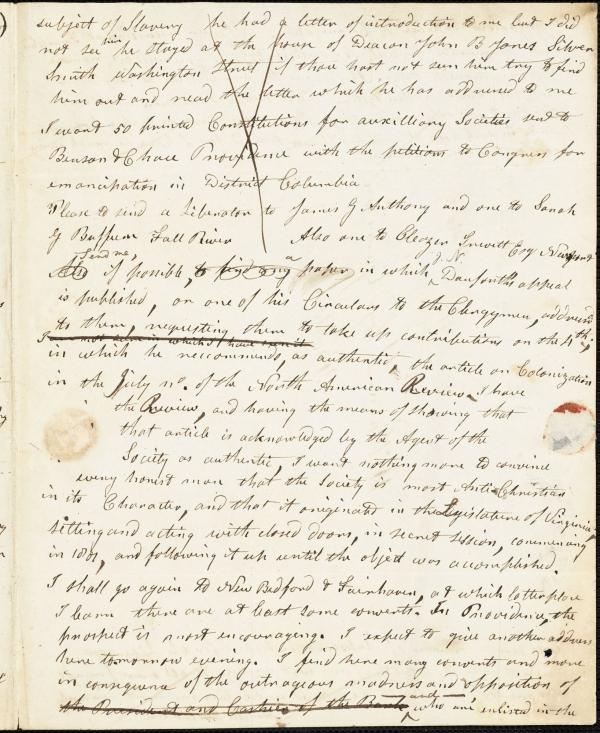 subject of Slavery he had a letter of introduction to me but I did
not see him he stayed at the house of Deacon John B Jones Silver
Smith Washington Street if thou hast not seen him try to find
him out and read the letter which he has addressed to me
I want 50 printed Constitutions for auxilliary Societies sent to
Benson & Chace Providence with the petitions to Congress for
emancipation in District Columbia
Please to send a Liberator to James G Anthony and one to Sarah
G Buffum Fall River Also one to Eleazer Trevett Esq Newport
Also send me, if possible, to find any a paper in which J. N. Danforth's appeal
is published, or one of his Circulars to the Clergymen, addressed
to them, requesting them to take up contributions on the 4th;
I
in which he reccommends, as authentic, the article on Colonization
in the July no. of the North American Review. I have
the Review, and having the means of showing that
that article is acknowledged by the Agent of the
Society as authentic, I want nothing more to convince
every honest man that the Society is most Anti-Christian
in its Character, and that it originated in the Legislature of Virginia,
setting and acting with closed doors, in secret session, commencing
in 1801, and following it up until the object was accomplished.
I shall go again to New Bedford & Fairhaven, at which latter place
I learn there are at least some converts. In Providence, the
prospect is most encouraging. I expect to give another address
here tomorrow evening. I find here many converts and more
in consequence of the outrageous madness and opposition of
the President and Cashier of the Bank and who are enlisted in the